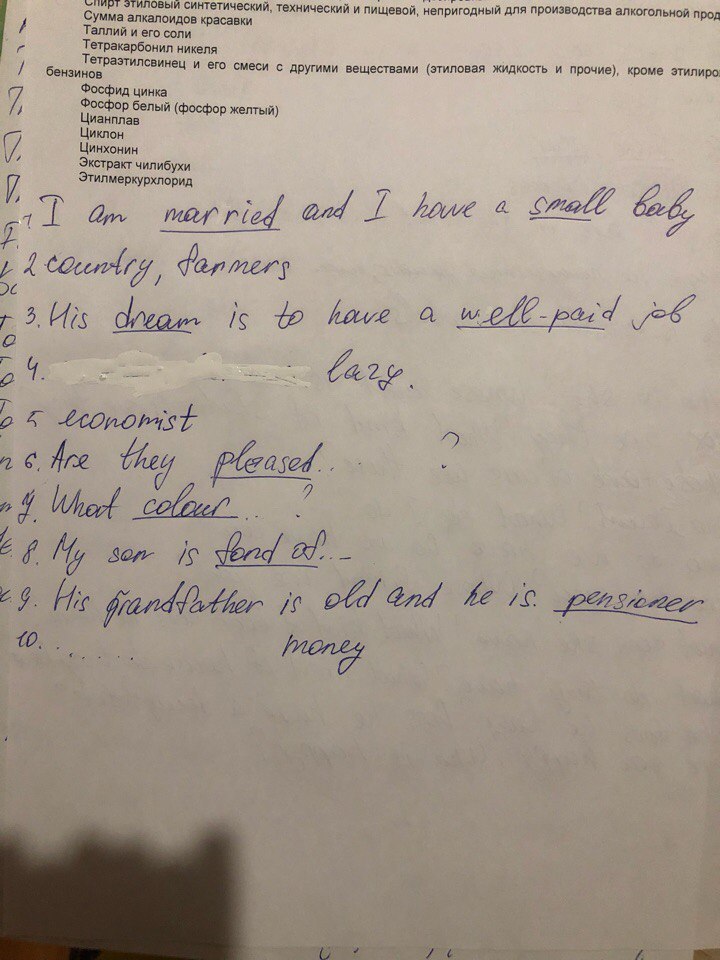 Спирт этиловый синтетический, технический и пищевой, непригодный для производства алкогольной прод
Сумма алкалоидов красавки
Таллий и его соли
Тетракарбонил никеля
Тетраэтилсвинец и его смеси с другими веществами (этиловая жидкость и прочие), кроме этилиро
бензинов
Фосфид цинка
Фосфор белый (фосфор желтый)
Цианплав
Циклон
Цинхонин
Экстракт чилибухи
Этилмеркурхлорид
I am married and I have a small baby
2 country, farmers
3. His dream is to have a well-paid job
4. lazy.
5 economist
6. Are they pleased.. ?
7. What colour... ?
8. My son is fond of...
9. His grandfather is old and he is. pensioner
10........ money